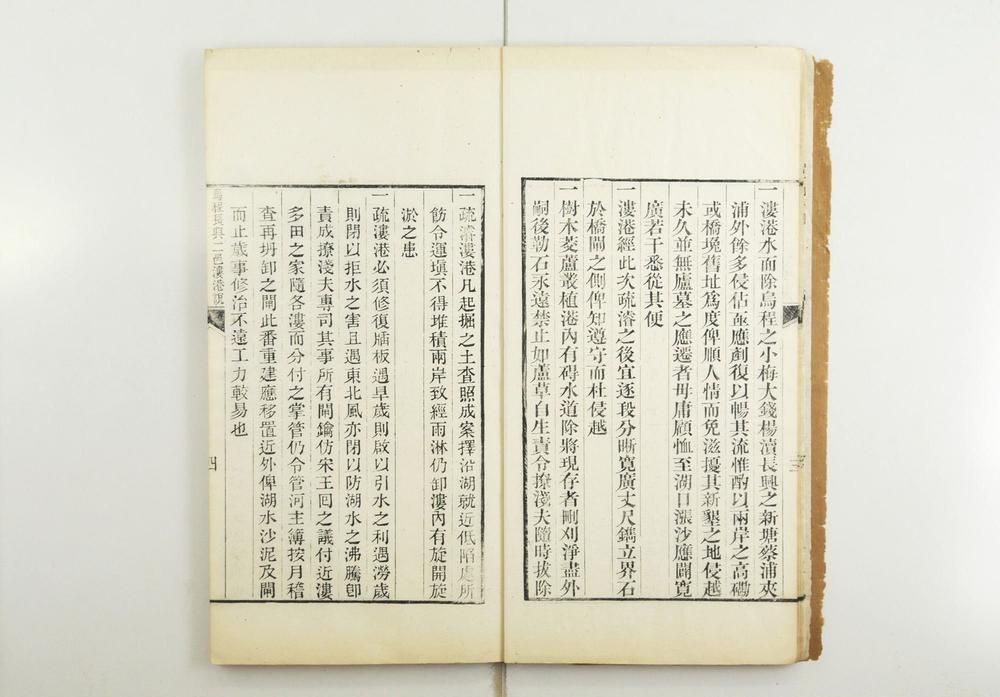 一漊港水面除烏程之小梅大錢楊瀆長興之新塘蔡浦夾
浦外餘多侵佔亟應剷復以暢其流惟酌以兩岸之高磡
或橋堍舊址爲度俾順人情而免滋擾其新墾之地侵越
未久並無廬墓之應遷者毋庸顧恤至湖口漲沙應闢寬
廣若干悉從其便
一漊港經此次疏濬之後宜逐段分晰寬廣丈尺鐫立界石
於橋閘之側俾知遵守而杜侵越
一樹木菱蘆叢植港內有碍水道除將現存者刪刈淨盡外
嗣後勒石永遠禁止如蘆草自生責令撩淺夫隨時拔除
一疏濬漊港凡起掘之土查照成案擇沿湖就近低陷處所
飭令運塡不得堆積兩岸致經雨淋仍卸漊內有旋開旋
淤之患
一疏漊港必須修復牐板遇旱歲則啟以引水之利遇澇歲
則閉以拒水之害且遇東北風亦閉以防湖水之沸騰卽
責成撩淺夫專司其事所有閘鑰仿宋王回之議付近漊
多田之家隨各漊而分付之掌管仍令管河主簿按月稽
查再坍卸之閘此番重建應移置近外俾湖水沙泥及閘
而止歲事修治不遠工力較易也
烏程長興二邑漊港說
四
三